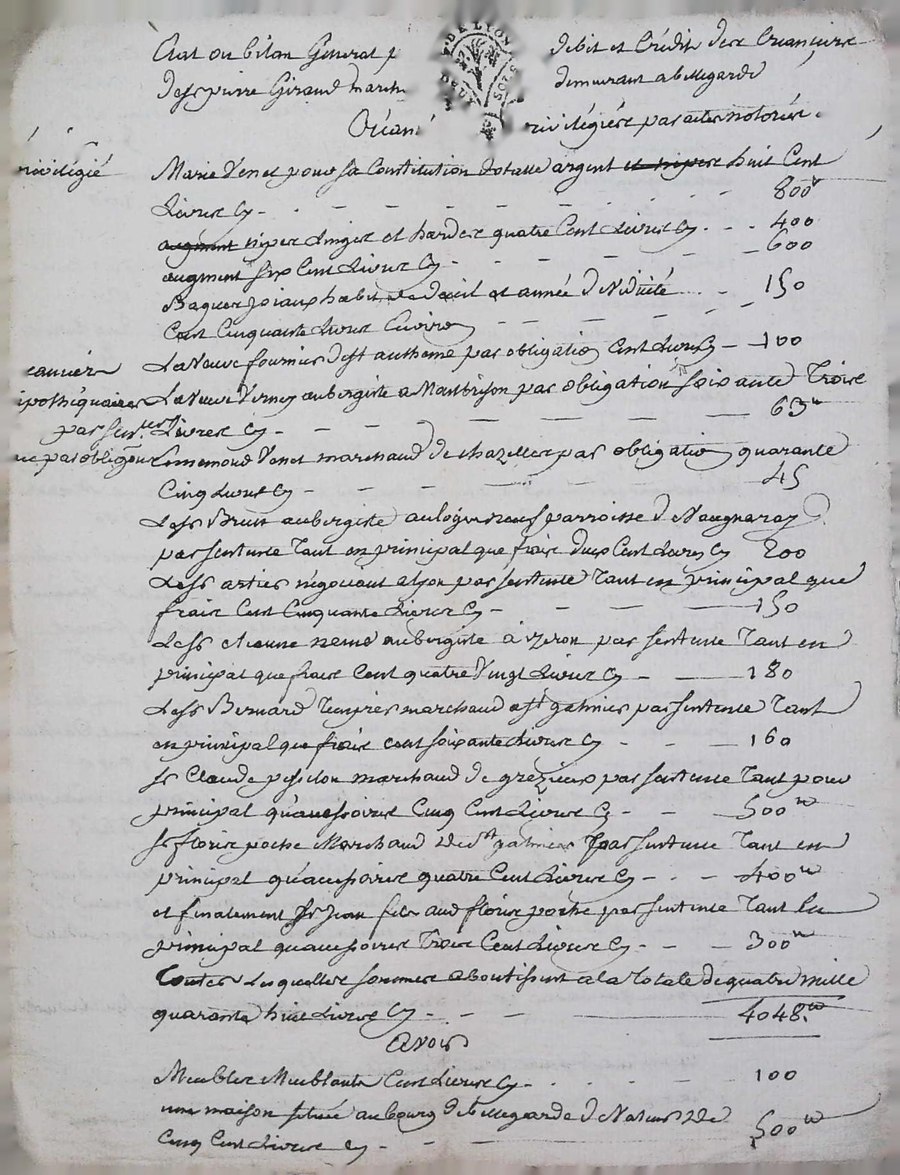 Etat ou bilan General debit et Crédit des Créanciers
de sr pierre Giraud march demeurant a bellegarde
Créan rivilégiér par actes notoriés
G DE LYON
SOLS
rivilegié
Marie Venet pour sa Constitution dotalle argent et nipes huit Cent
Livres Cy - 800tt
augment nipes Linges et hardes quatre Cent Livres Cy - 400
augment six Cent Livres Cy - 600
Bagues Joiaux habit de deuil et année de Viduité
Cent Cinquante Livres Environ - 150
La Veuve fournier de st anthème par obligation Cent Livres Cy - 100
eancier
ipothéquaires
par sentces
ue par obligaon
La Veuve Verney aubergiste a Montbrison par obligation soixante Trois
Livres Cy - 63tt
Ennemond Venet marchand de chazelles par obligation quarante
Cinq Livres Cy - 45
Le sr Brun aubergiste au logis neuf parroisse de Vaugneray
par sentence Tant en principal que frais deux Cent Livres Cy 200
Le sr artier négociant a Lyon par sentence Tant en principal que
frais Cent Cinquante Livres Cy - 150
Le sr etienne neme aubergiste à izeron par sentence Tant en
principal que frais Cent quatre Vingt Livres Cy - 180
Le sr Bernard marchand a st galmier par sentence Tant
en principal que frais cent soixante Livres Cy - 160
sr Claude marchand de grézieux par sentence Tant pour
principal qu'accessoires Cinq Cent Livres Cy - 500tt
sr floris poche Marchand de st galmier par sentence Tant en
principal qu'accessoires quatre Cent Livres Cy - 400tt
et finalement sr Jean fils aud floris poche par sentence Tant En
principal qu'accessoires Trois Cent Livres Cy - 300tt
Toutes Lesquelles sommes aboutissent a la Totale de quatre mille
quarante huit Livres Cy - 4048.tt
avoir
Meubles Meublants Cent Livres Cy - 100
une maison située au bourg de bellegarde de Valeur de
Cinq Cent Livres Cy - 500tt